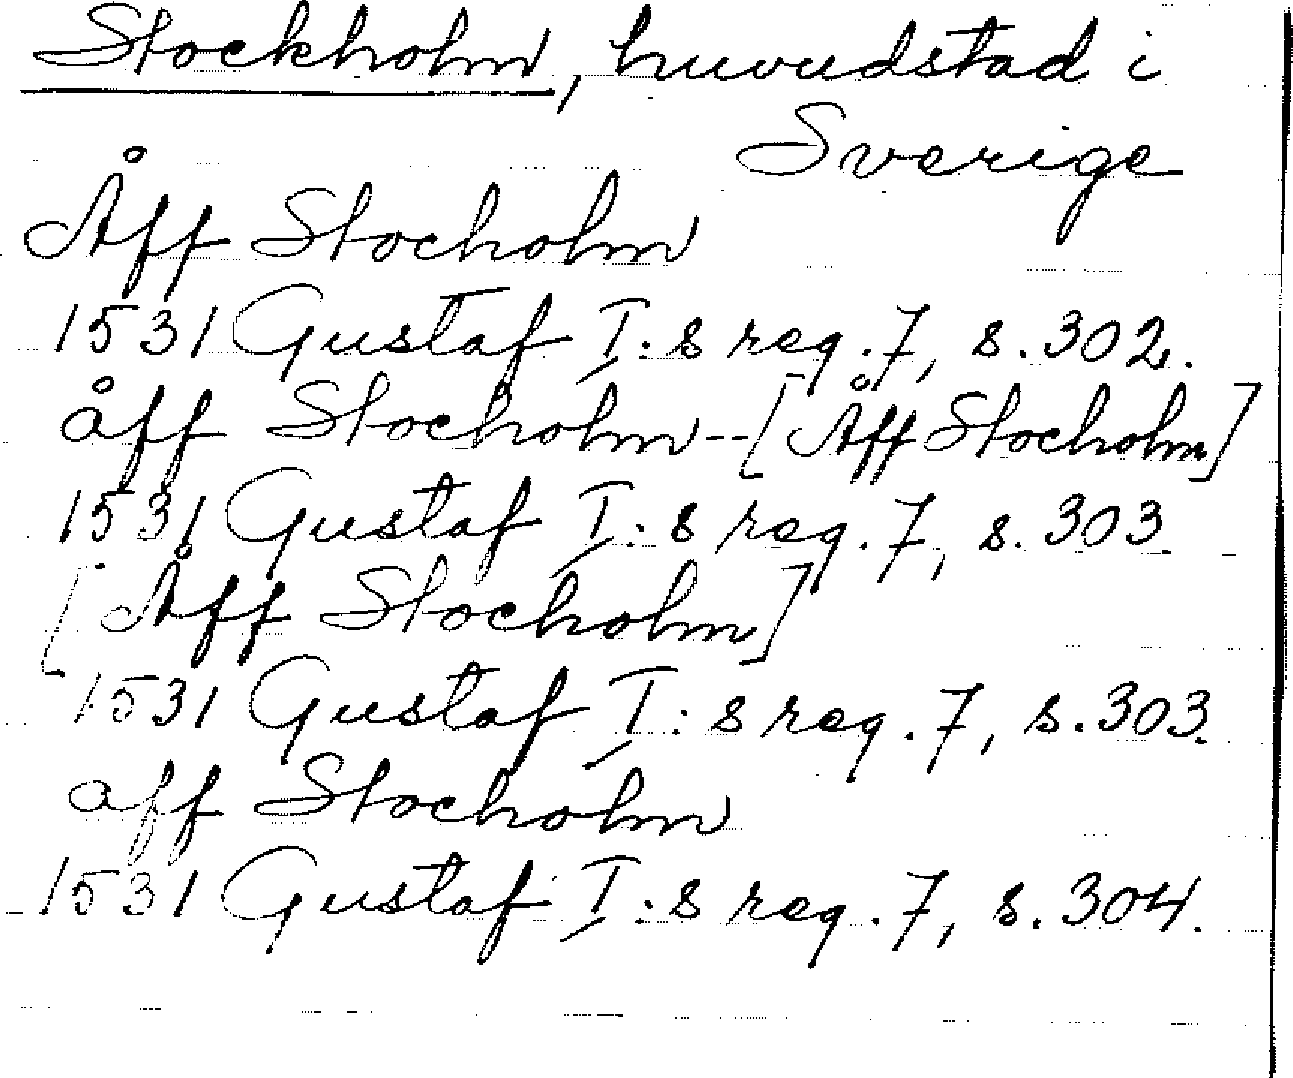 Stockholm, huvudstad i
Sverige
Åff Stocholm
1531 Gustaf I:s reg. 7, s. 302.
åff Stocholm--[Åff Stocholm]
1531 Gustaf I:s reg. 7, s. 303
[Åff Stocholm]
1531 Gustaf I:s reg. 7, s. 303.
aff Stocholm
1531 Gustaf I:s reg. 7, s. 304.